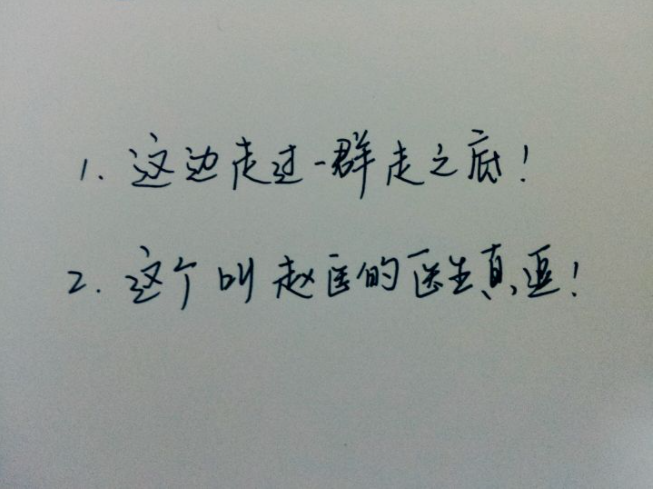 1. 这边走过一群走之底！
2. 这个叫赵医的医生真逗！